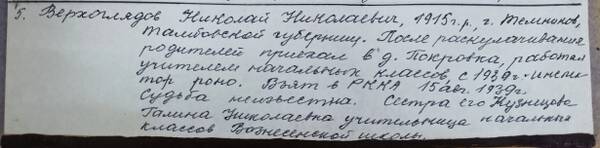 5. Верхоглядов Николай Николаевич, 1915 г.р., г. Темников,
Тамбовской губернии. После раскулачивания
родителей приехал в д. Покровка, работал
учителем начальных классов, с 1939г. - инспек-
тор роно. Взят в РККА 15 авг. 1939г.
Судьба неизвестна. Сестра его Кузнецова
Галина Николаевна учительница начальных
классов Вознесенской школы.